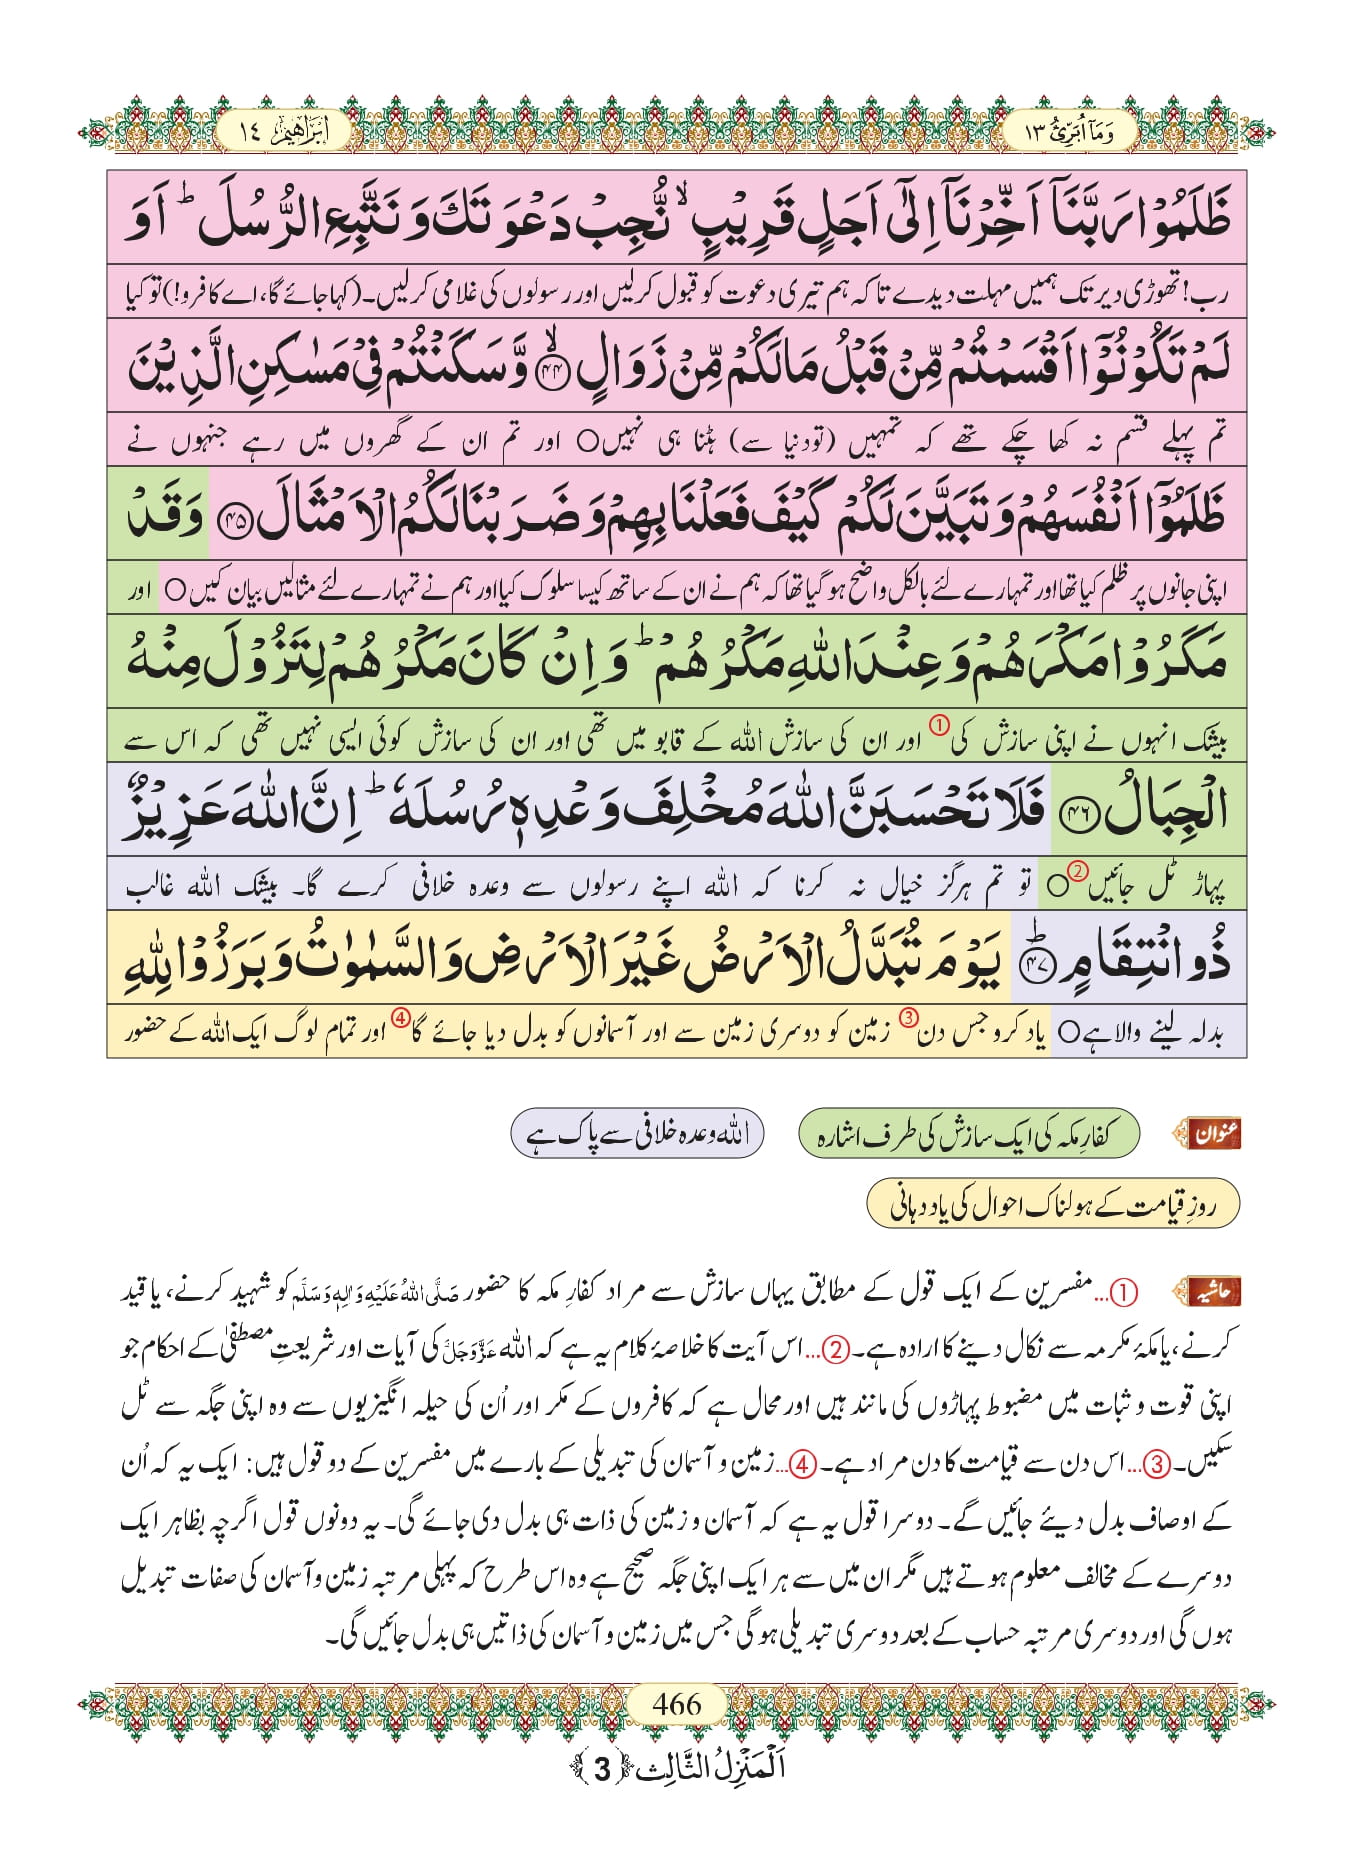 وَمَاۤ اُبَرِّئُ ١٣
اِبْرٰهِیْم ١٤
ظَلَمُوْا رَبَّنَاۤ اَخِّرْنَاۤ اِلٰۤی اَجَلٍ قَرِیْبٍ ۙ نُّجِبْ دَعْوَتَكَ وَ نَتَّبِعِ الرُّسُلَ ؕ اَوَ
رب! تھوڑی دیر تک ہمیں مہلت دیدے تاکہ ہم تیری دعوت کو قبول کرلیں اور رسولوں کی غلامی کرلیں۔ (کہا جائے گا، اے کافرو!) تو کیا
لَمْ تَكُوْنُوْۤا اَقْسَمْتُمْ مِّنْ قَبْلُ مَا لَكُمْ مِّنْ زَوَالٍ ۙ﴿۴۴﴾ وَّ سَكَنْتُمْ فِیْ مَسٰكِنِ الَّذِیْنَ
تم پہلے قسم نہ کھا چکے تھے کہ تمہیں (تو دنیا سے) ہٹنا ہی نہیں○ اور تم ان کے گھروں میں رہے جنہوں نے
ظَلَمُوْۤا اَنْفُسَهُمْ وَ تَبَیَّنَ لَكُمْ كَیْفَ فَعَلْنَا بِهِمْ وَ ضَرَبْنَا لَكُمُ الْاَمْثَالَ ﴿۴۵﴾ وَ قَدْ
اپنی جانوں پر ظلم کیا تھا اور تمہارے لئے بالکل واضح ہوگیا تھا کہ ہم نے ان کے ساتھ کیسا سلوک کیا اور ہم نے تمہارے لئے مثالیں بیان کیں○ اور
مَكَرُوْا مَكْرَهُمْ وَ عِنْدَ اللّٰهِ مَكْرُهُمْ ؕ وَ اِنْ كَانَ مَكْرُهُمْ لِتَزُوْلَ مِنْهُ
بیشک انہوں نے اپنی سازش کی① اور ان کی سازش اللہ کے قابو میں تھی اور ان کی سازش کوئی ایسی نہیں تھی کہ اس سے
الْجِبَالُ ﴿۴۶﴾ فَلَا تَحْسَبَنَّ اللّٰهَ مُخْلِفَ وَعْدِهٖ رُسُلَهٗ ؕ اِنَّ اللّٰهَ عَزِیْزٌ
پہاڑ ٹل جائیں②○ تو تم ہرگز خیال نہ کرنا کہ اللہ اپنے رسولوں سے وعدہ خلافی کرے گا۔ بیشک اللہ غالب
ذُو انْتِقَامٍ ؕ﴿۴۷﴾ یَوْمَ تُبَدَّلُ الْاَرْضُ غَیْرَ الْاَرْضِ وَ السَّمٰوٰتُ وَ بَرَزُوْا لِلّٰهِ
بدلہ لینے والا ہے○ یاد کرو جس دن③ زمین کو دوسری زمین سے اور آسمانوں کو بدل دیا جائے گا④ اور تمام لوگ ایک اللہ کے حضور
عنوان
کفارِ مکہ کی ایک سازش کی طرف اشارہ
اللہ وعدہ خلافی سے پاک ہے
روزِ قیامت کے ہولناک احوال کی یاد دہانی
حاشیہ ①...مفسرین کے ایک قول کے مطابق یہاں سازش سے مراد کفارِ مکہ کا حضور صَلَّی اللہُ عَلَیْہِ وَاٰلِہٖ وَسَلَّم کو شہید کرنے، یا قید
کرنے، یا مکۂ مکرمہ سے نکال دینے کا ارادہ ہے۔②...اس آیت کا خلاصۂ کلام یہ ہے کہ اللہ عَزَّوَجَلَّ کی آیات اور شریعتِ مصطفیٰ کے احکام جو
اپنی قوت و ثبات میں مضبوط پہاڑوں کی مانند ہیں اور محال ہے کہ کافروں کے مکر اور اُن کی حیلہ انگیزیوں سے وہ اپنی جگہ سے ٹل
سکیں۔③...اس دن سے قیامت کا دن مراد ہے۔④...زمین و آسمان کی تبدیلی کے بارے میں مفسرین کے دو قول ہیں: ایک یہ کہ اُن
کے اوصاف بدل دیئے جائیں گے۔ دوسرا قول یہ ہے کہ آسمان و زمین کی ذات ہی بدل دی جائے گی۔ یہ دونوں قول اگرچہ بظاہر ایک
دوسرے کے مخالف معلوم ہوتے ہیں مگر ان میں سے ہر ایک اپنی جگہ صحیح ہے وہ اس طرح کہ پہلی مرتبہ زمین و آسمان کی صفات تبدیل
ہوں گی اور دوسری مرتبہ حساب کے بعد دوسری تبدیلی ہوگی جس میں زمین و آسمان کی ذاتیں ہی بدل جائیں گی۔
466
اَلْمَنْزِلُ الثَّالِث ﴿3﴾